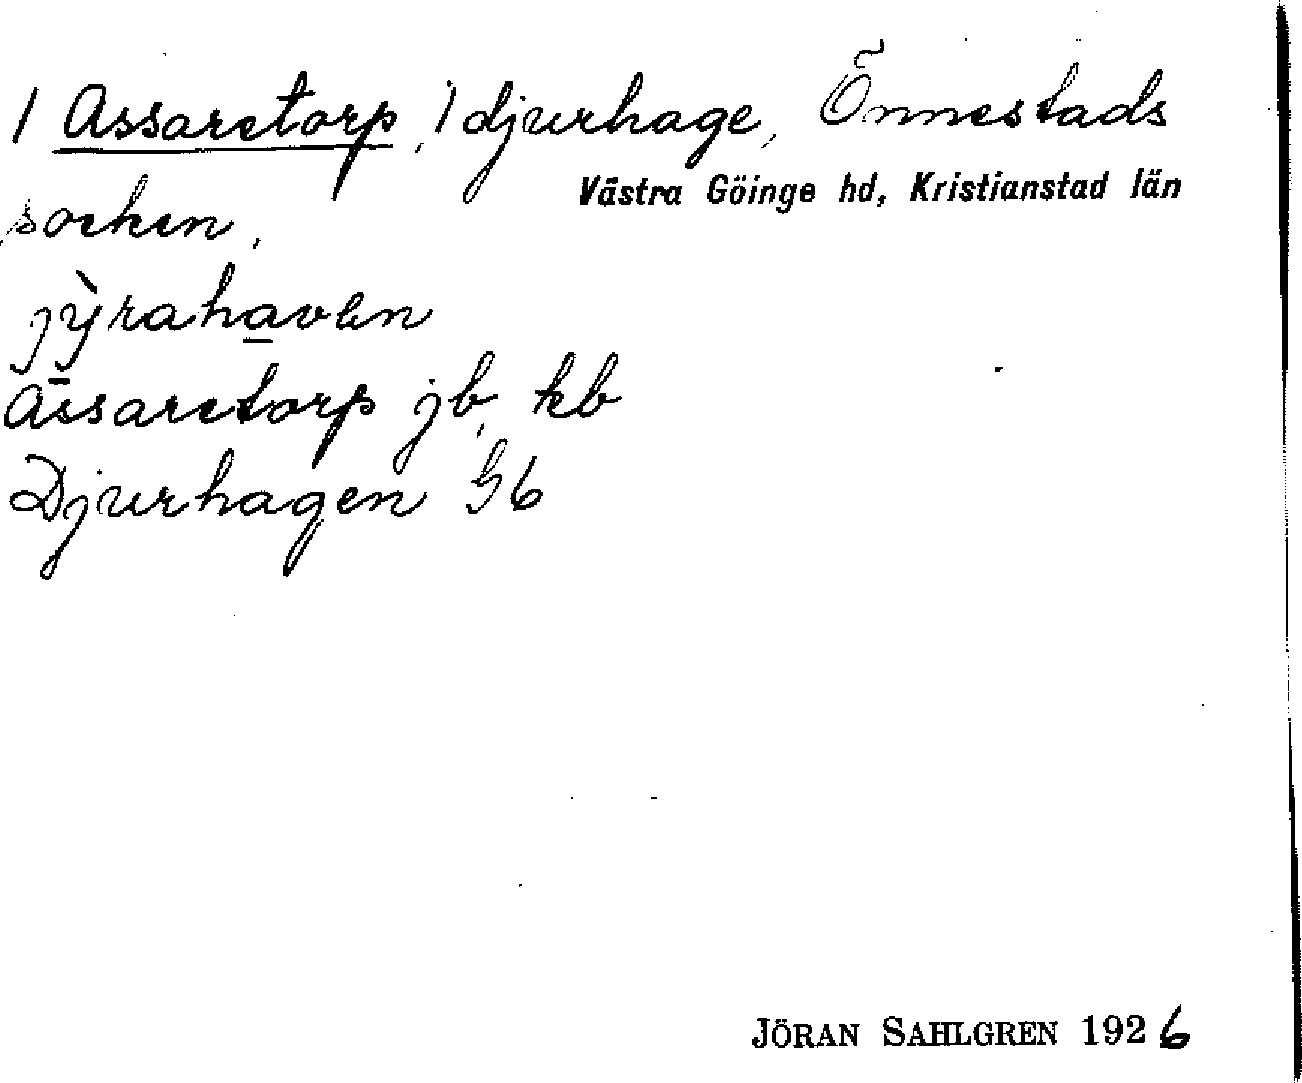 / Assaretorp, / djurhage, Önnestads
Västra Göinge hd, Kristianstad län
socken,
jỳrahaven
Assaretorp jb, kb
Djurhagen Gb
JÖRAN SAHLGREN 1926